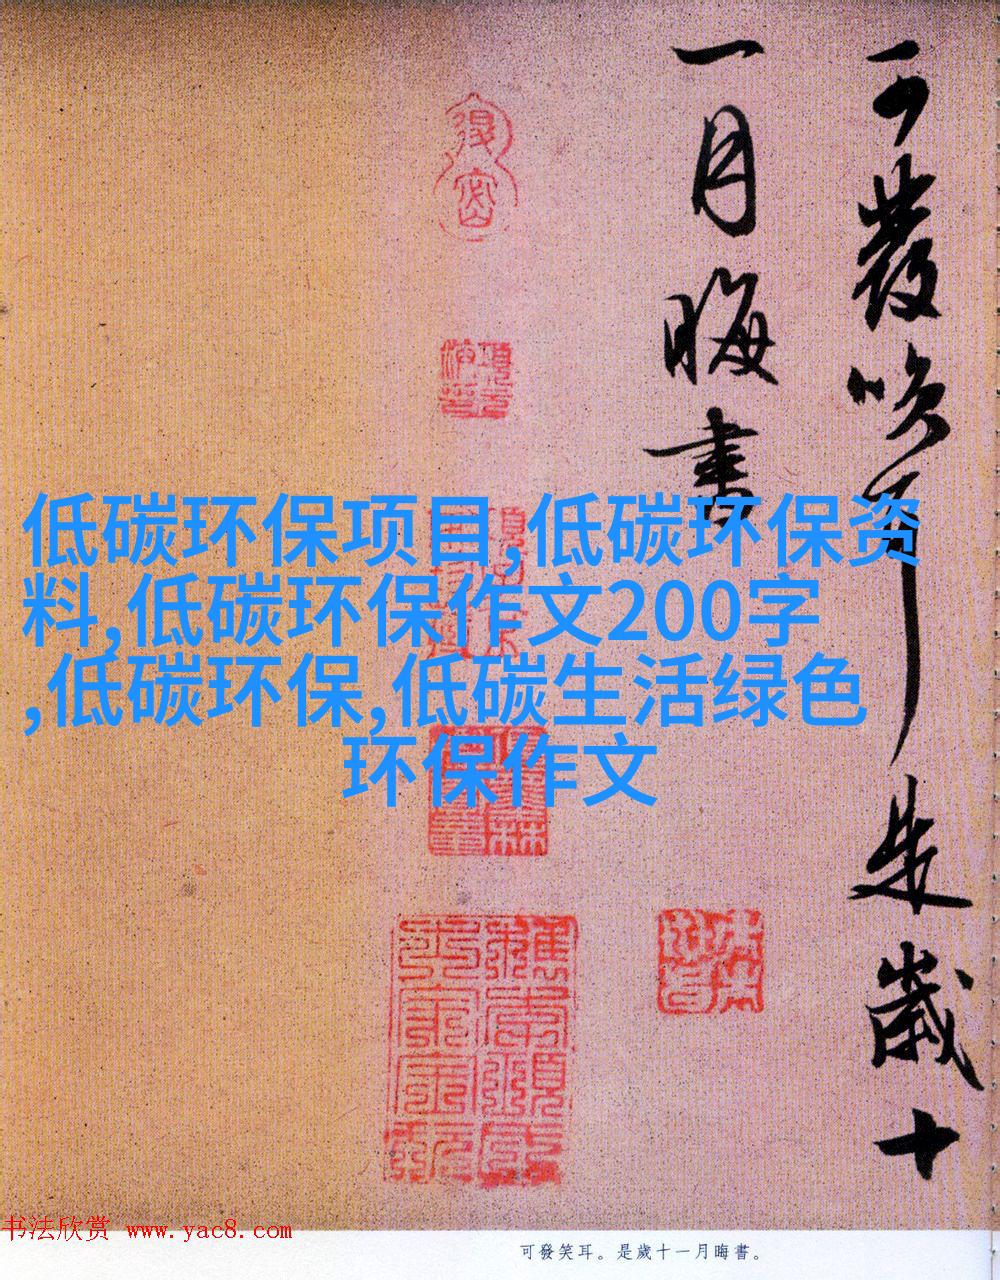 可發笑耳是歲十
一月晦書
低碳环保项目,低碳环保资
料,低碳环保作文200字
,低碳环保,低碳生活绿色
环保作文
书法欣赏 www.yac8.com
可發笑耳。是歲十一月晦書。